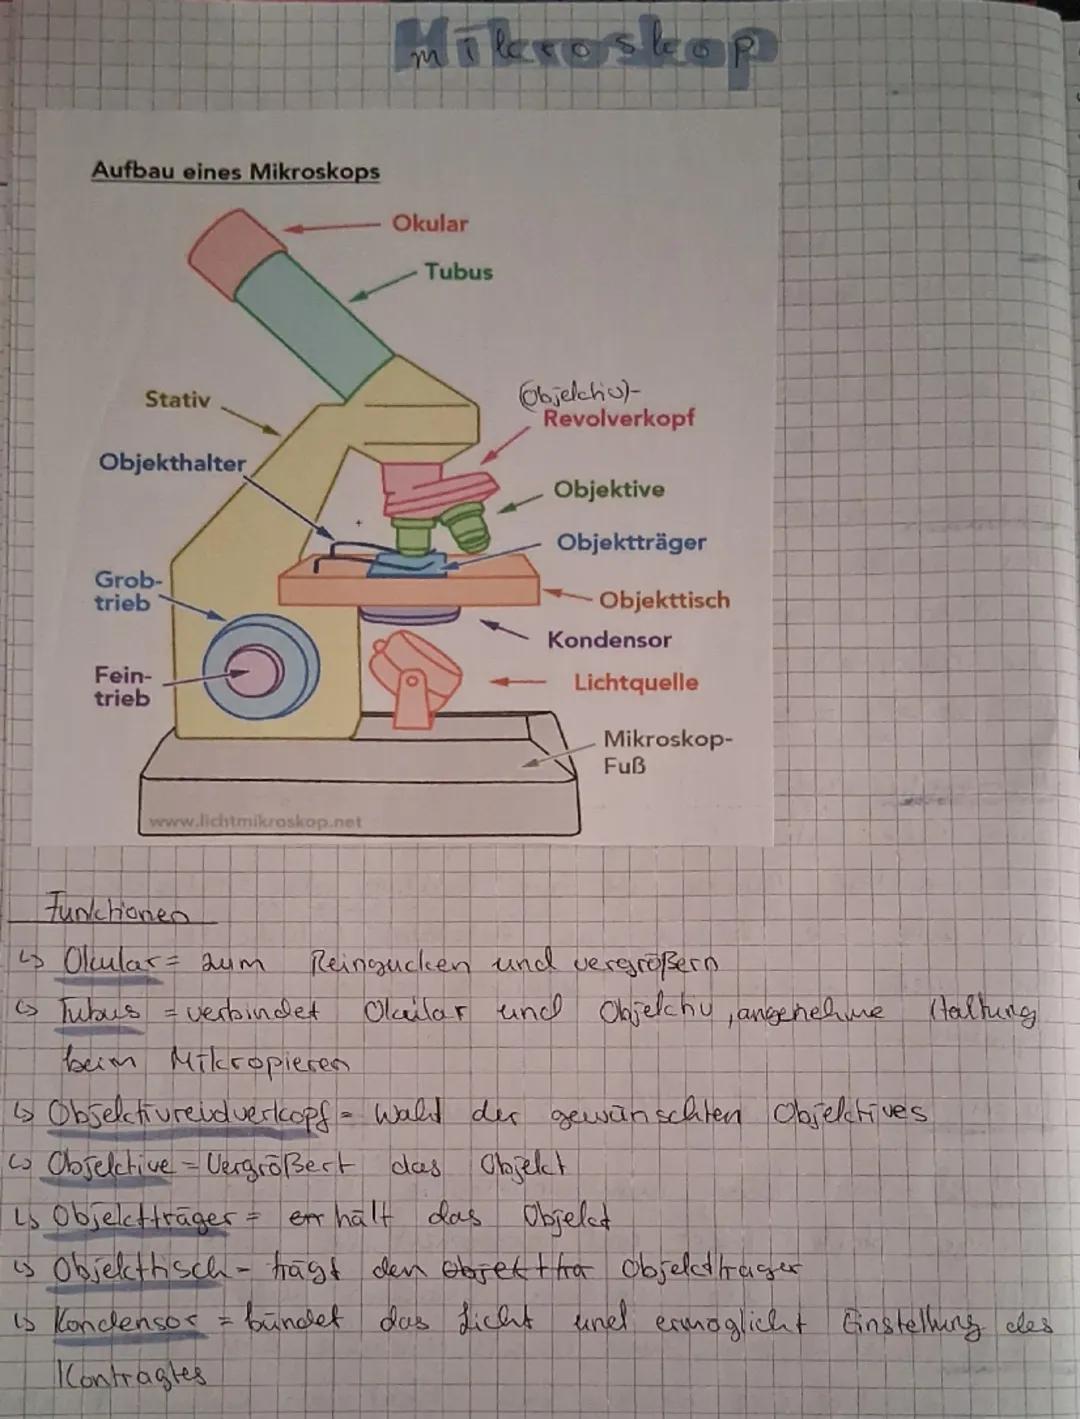 Mikroskop
Aufbau eines Mikroskops
Okular
Tubus
Stativ
(Objektiv)-
Revolverkopf
Objekthalter
Objektive
Objektträger
Grob-
trieb
Objekttisch
Kondensor
Fein-
trieb
Lichtquelle
Mikroskop-
Fuß
www.lichtmikroskop.net
Funktionen
↳ Okular = zum Reingucken und vergrößern
↳ Tubus = verbindet Okular und Objektiv, angenehme Haltung
beim Mikropieren
↳ Objektivreidverkopf = Wahl der gewünschten Objektives
↳ Objektive = Vergrößert das Objekt
↳ Objektträger = er hält das Objekt
↳ Objekttisch - trägt den Objekttra Objektträger
↳ Kondensor = bündet das Licht und ermöglicht Einstellung des
Kontragtes